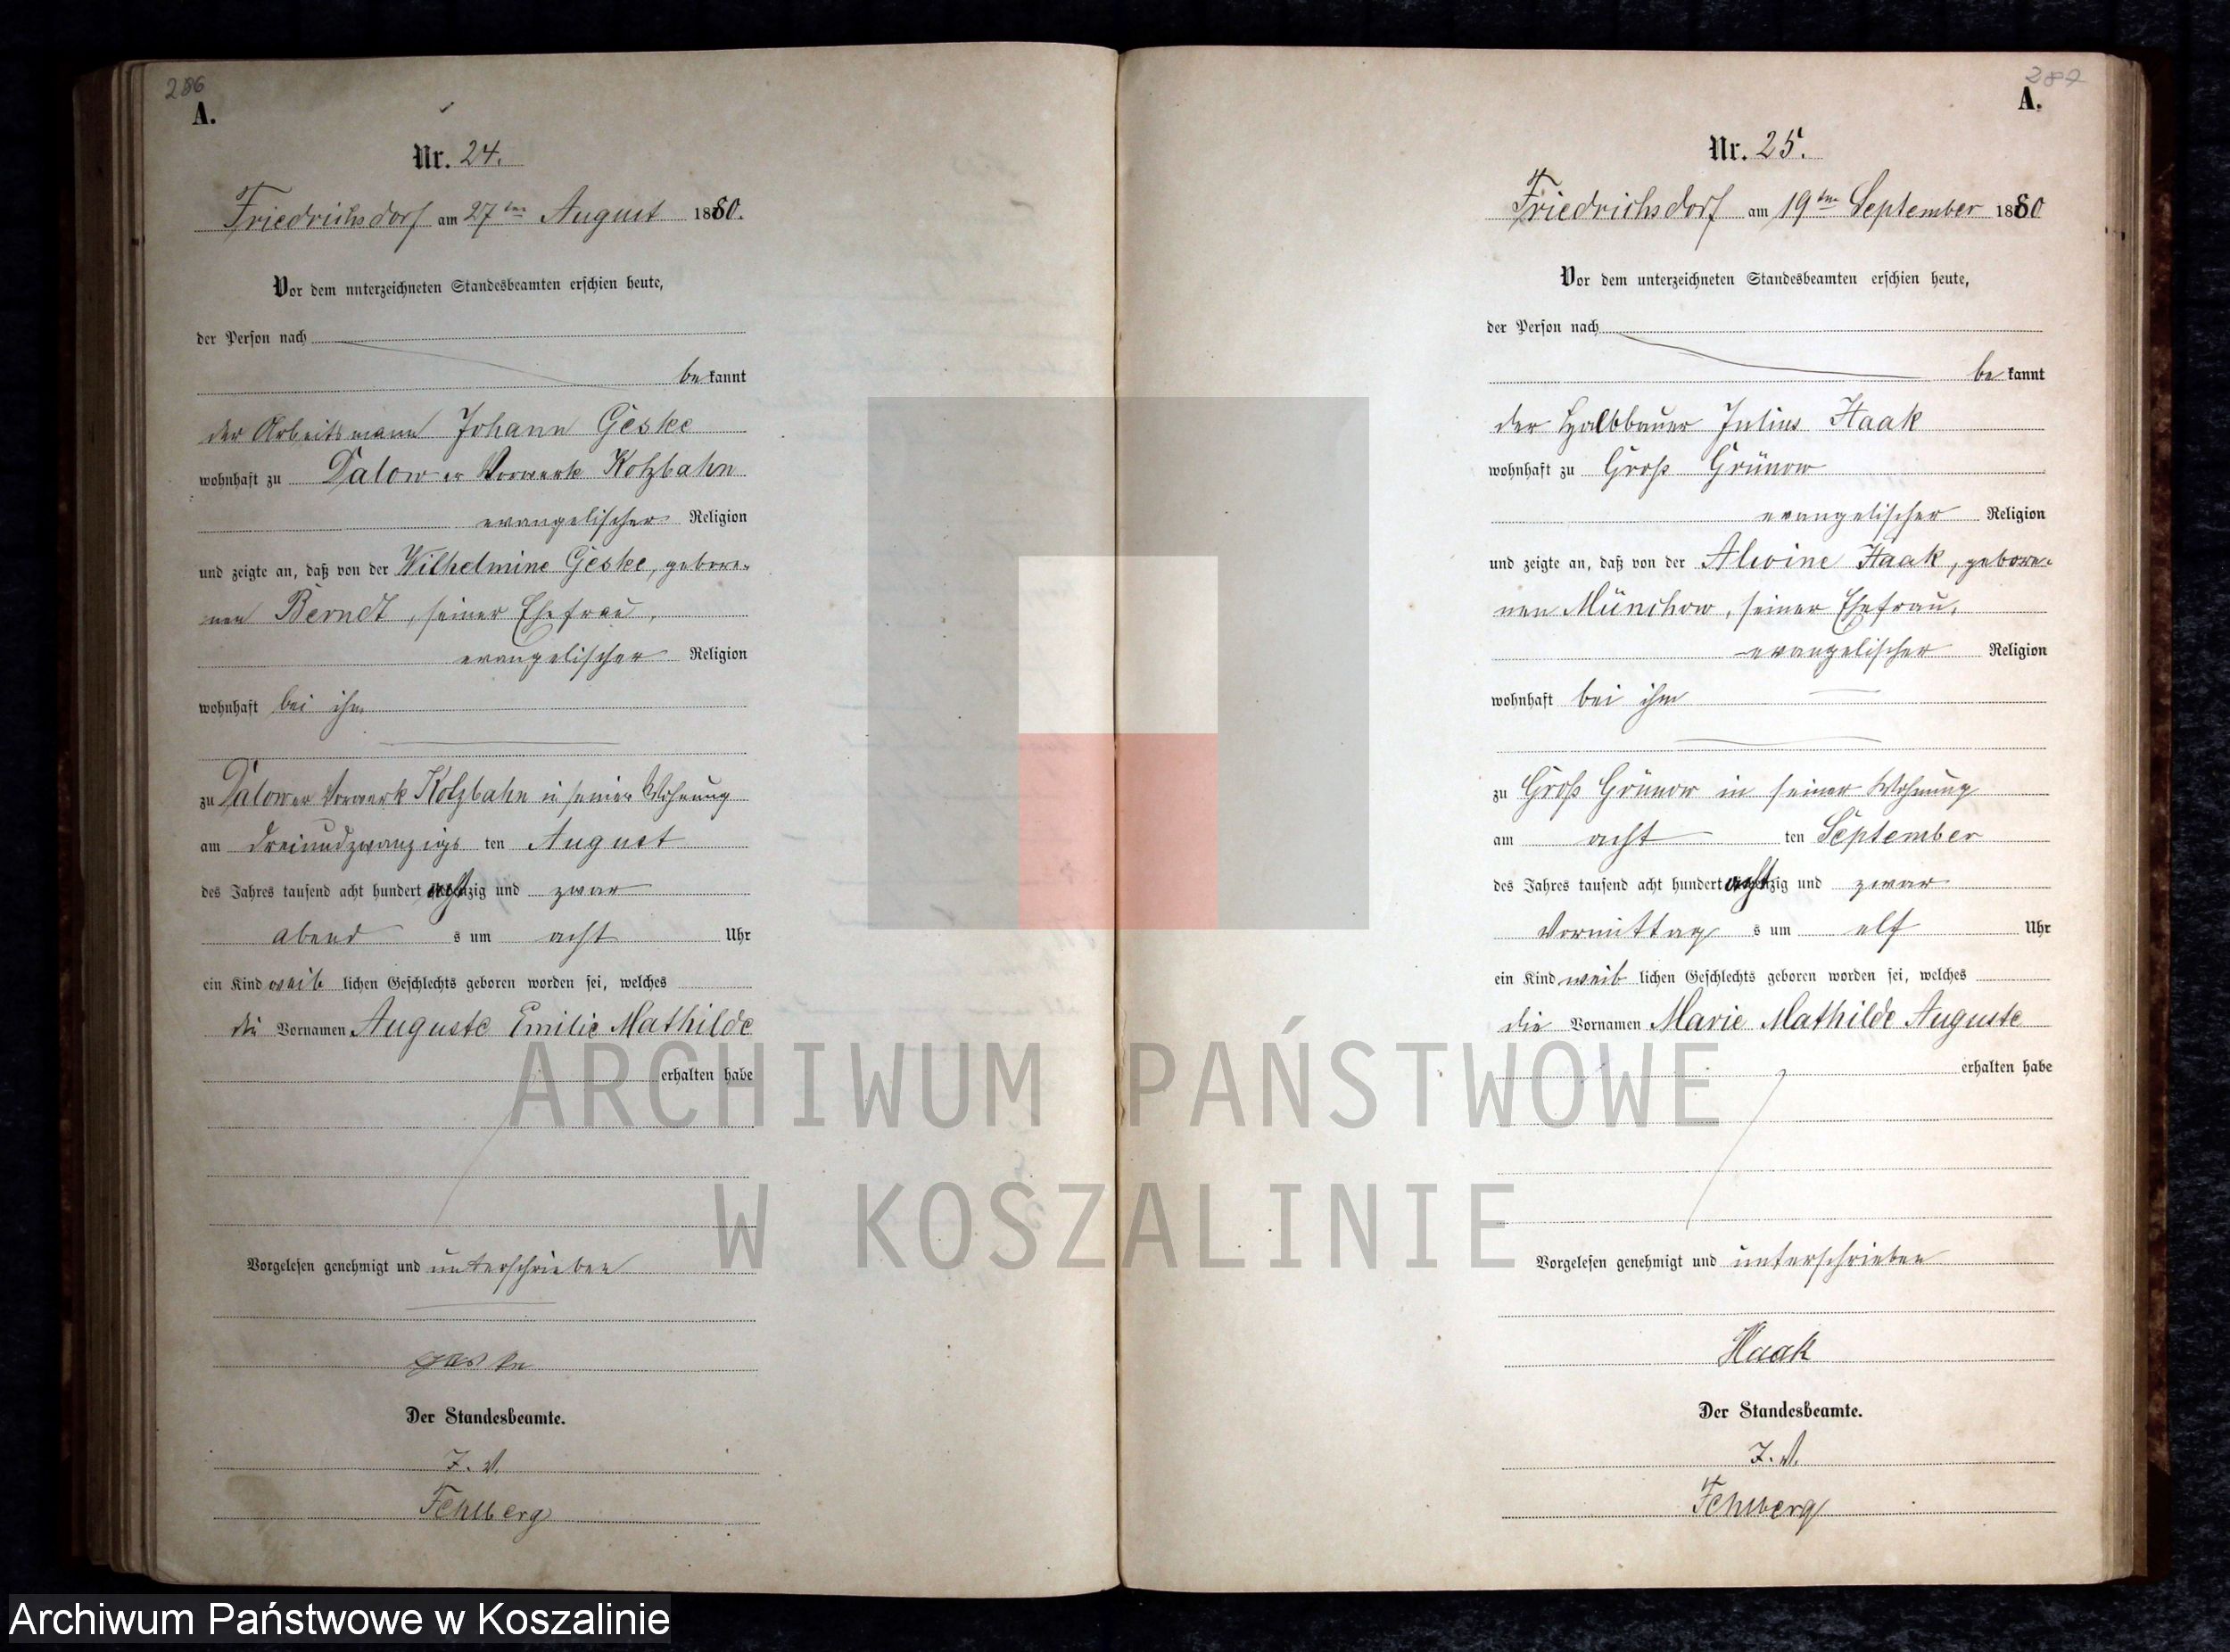 286
A.
Nr. 24.
Friedrichsdorf am 27ten August 1880.
Vor dem unterzeichneten Standesbeamten erschien heute,
der Person nach
bekannt
der Arbeitsmann Johann Geske
wohnhaft zu Dalower Vorwerk Kolzbahn
evangelischer Religion
und zeigte an, daß von der Wilhelmine Geske, gebore-
nen Berndt, seiner Ehefrau,
evangelischer Religion
wohnhaft bei ihm
zu Dalower Vorwerk Kolzbahn in seiner Wohnung
am dreiundzwanzigs ten August
des Jahres tausend acht hundert achtzig und zwar
abend s um acht Uhr
ein Kind weib lichen Geschlechts geboren worden sei, welches
die Vornamen Auguste Emilie Mathilde
erhalten habe
Vorgelesen genehmigt und unterschrieben
Geske
Der Standesbeamte.
I. V.
Fehlberg
287
A.
Nr. 25.
Friedrichsdorf am 19ten September 1880
Vor dem unterzeichneten Standesbeamten erschien heute,
der Person nach
bekannt
der Halbbauer Julius Haak
wohnhaft zu Groß Grünow
evangelischer Religion
und zeigte an, daß von der Alwine Haak, gebore-
nen Münchow, seiner Ehefrau,
evangelischer Religion
wohnhaft bei ihm
zu Groß Grünow in seiner Wohnung
am acht ten September
des Jahres tausend acht hundert achtzig und zwar
Vormittag s um elf Uhr
ein Kind weib lichen Geschlechts geboren worden sei, welches
die Vornamen Marie Mathilde Auguste
erhalten habe
Vorgelesen genehmigt und unterschrieben
Haak
Der Standesbeamte.
I. V.
Fehlberg
ARCHIWUM PAŃSTWOWE
W KOSZALINIE
Archiwum Państwowe w Koszalinie